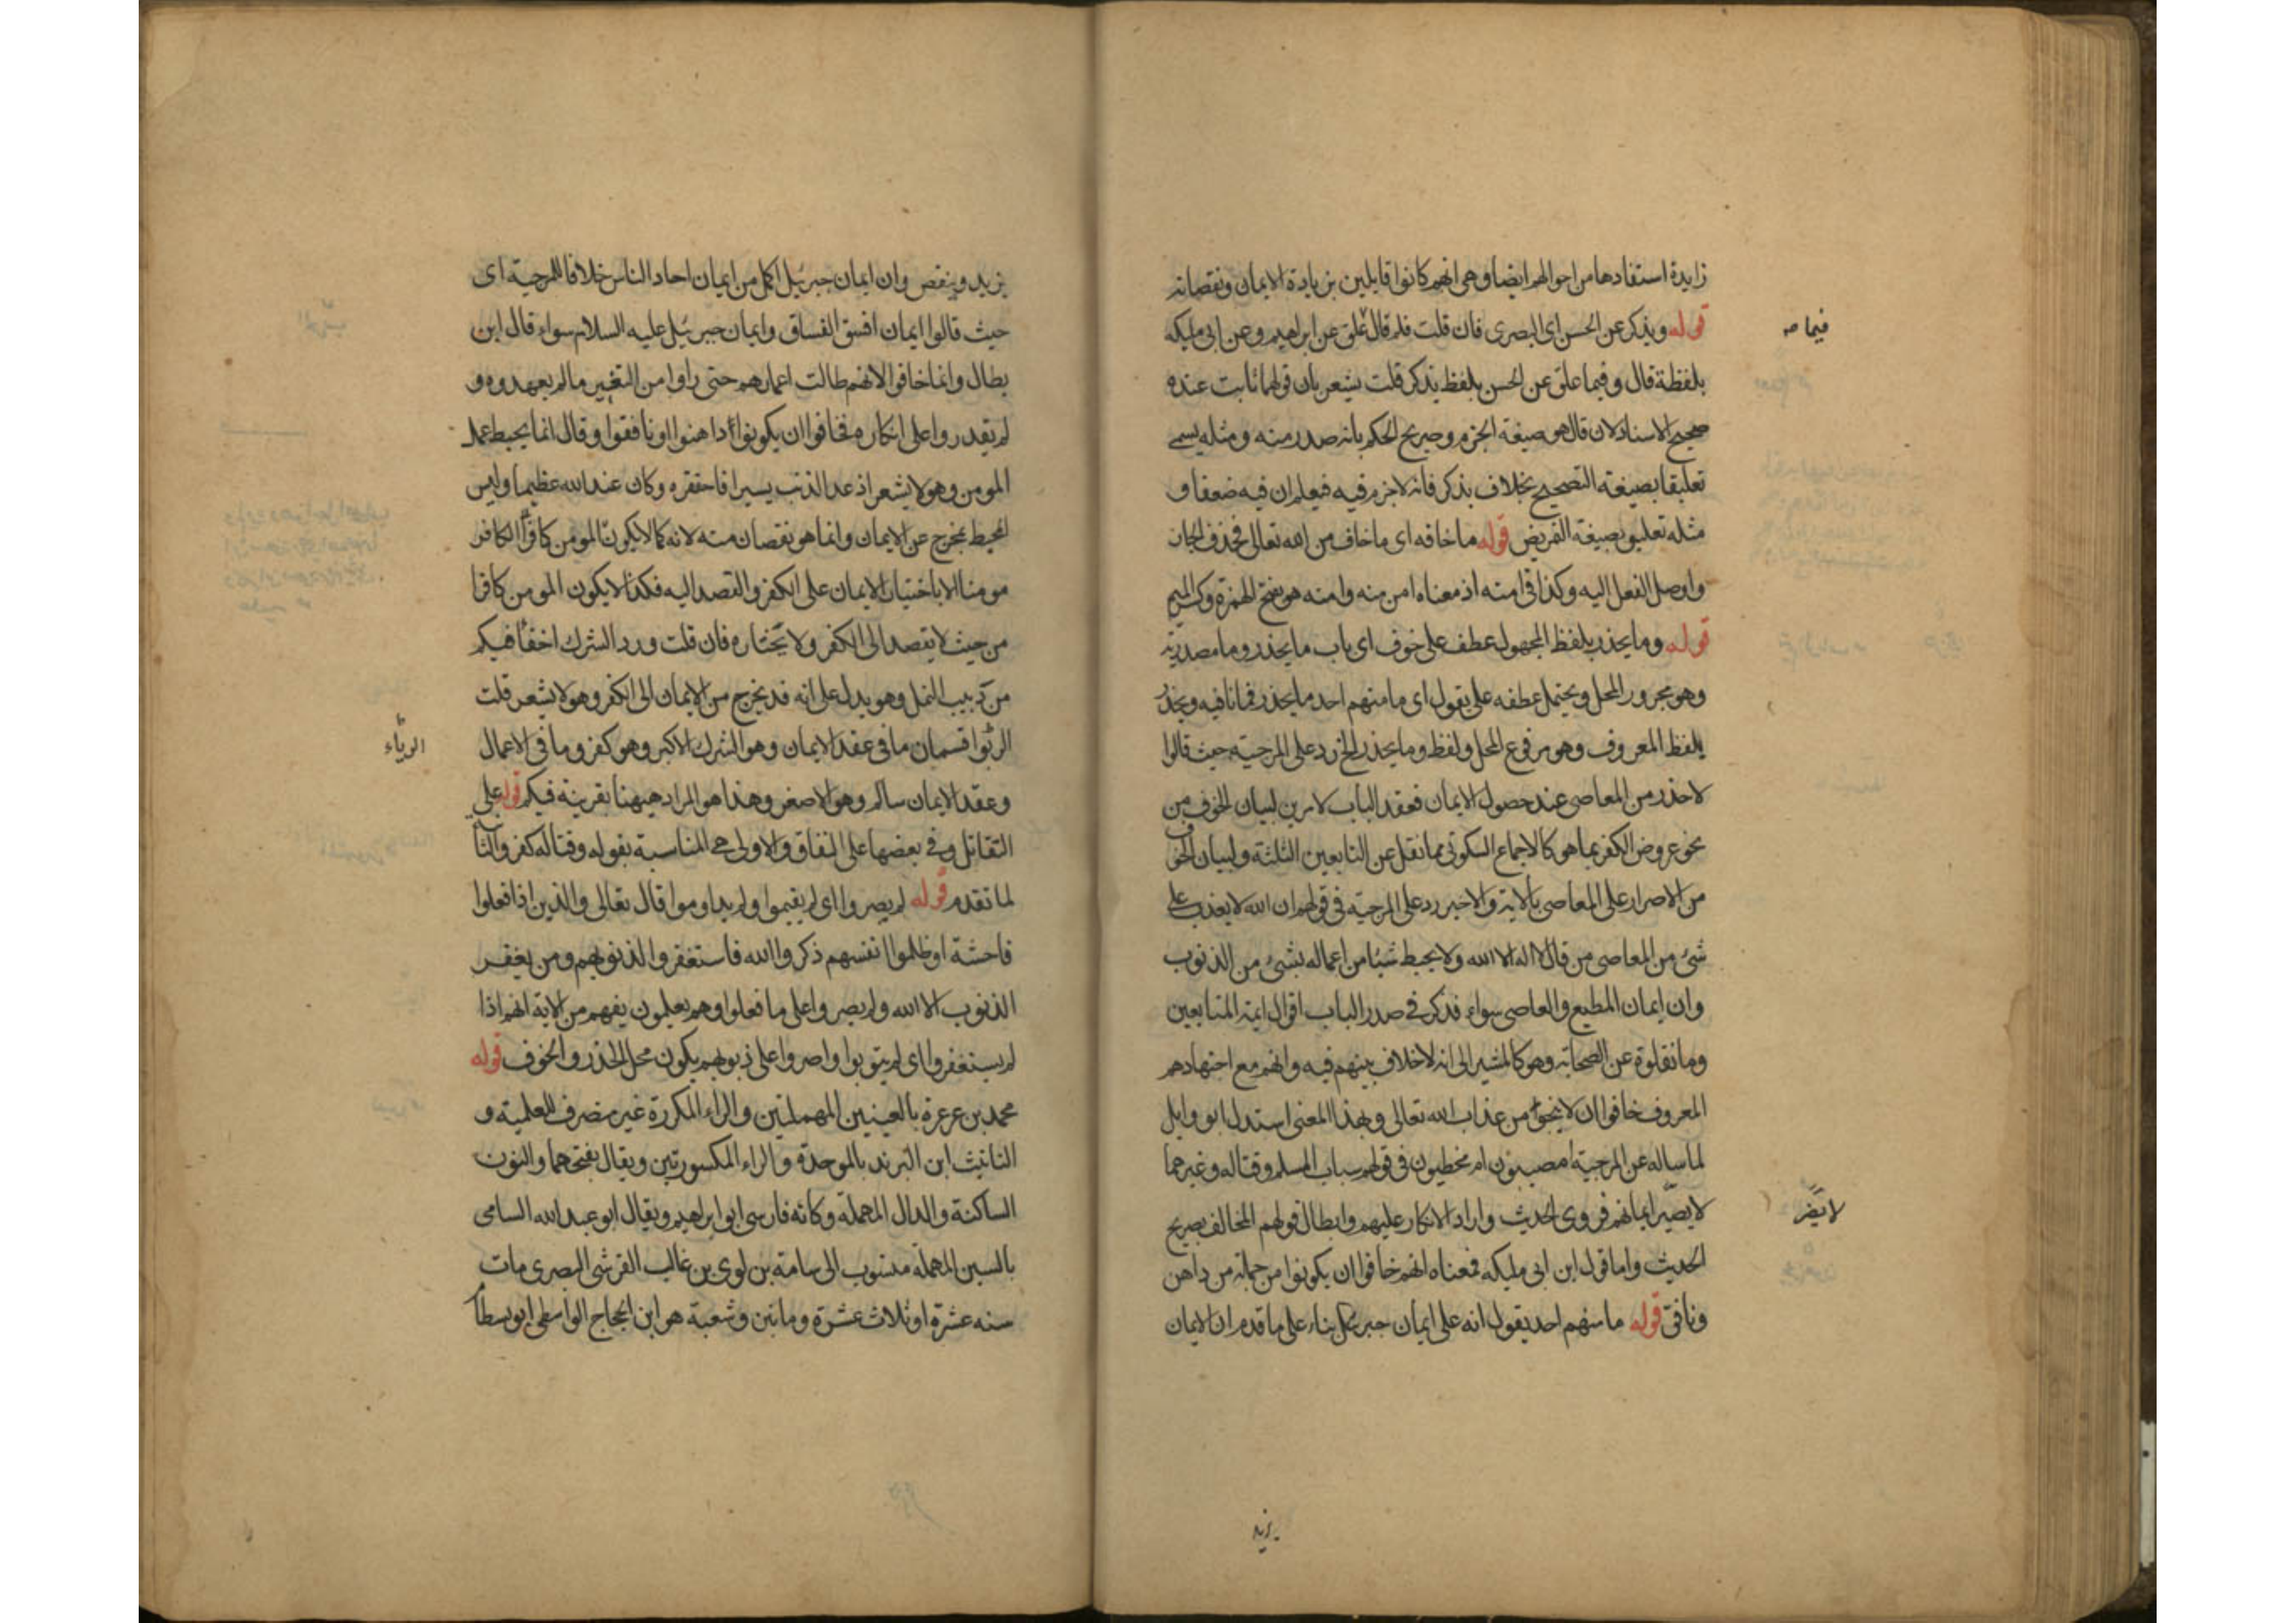 زايدة استفادها من احوالهم ايضا وهى انهم كانوا قايلين بزيادة الايمان ونقصانه
قوله ويذكر عن الحسن اى البصرى فان قلت فلم قال علق عن ابراهيم وعن ابى مليكه
فيما صه
بلفظة قال وفيما علق عن الحسن بلفظ يذكر قلت يشعر بان قولهما ثابت عنده
صحيح الاسناد لان قال هو صيغة الجزم وصريح الحكم بانه صدر منه ومثله يسمى
تعليقا بصيغة التصحيح بخلاف يذكر فانه لا جزم فيه فيعلم ان فيه ضعفا و
مثله تعليق بصيغة التمريض قوله ما خافه اى ما خاف من الله تعالى فحذف الجار
واوصل الفعل اليه وكذا فى امنه اذ معناه امن منه وامنه هو بفتح الهمزة وكسر الميم
قوله وما يحذر بلفظ المجهول عطف على خوف اى باب ما يحذر وما مصدرية
وهو مجرور المحل ويحتمل عطفه على يقول اى ما منهم احد ما يحذر فما نافيه ويحذر
بلفظ المعروف وهو مرفوع المحل ولفظ وما يحذر الخ رد على المرجية حيث قالوا
لا حذر من المعاصى عند حصول الايمان فعقد الباب لامرين لبيان الخوف من
نحو عروض الكفر بما هو كالاجماع السكوتى مما نقل عن التابعين الثلثة ولبيان الخوف
من الاصرار على المعاصى بالاية والاخير رد على المرجية فى قولهم ان الله لا يعذب على
شئ من المعاصى من قال لا اله الا الله ولا يحبط شيئا من اعماله بشئ من الذنوب
وان ايمان المطيع والعاصى سواء فذكر فى صدر الباب اقوال ايمة التابعين
وما نقلوة عن الصحابة وهو كالمشير الى انه لا خلاف بينهم فيه وانهم مع اجتهادهم
المعروف خافوا ان لا ينجوا من عذاب الله تعالى وبهذا المعنى استدل ابو وايل
لما ساله عن المرجية امصيبون ام مخطيون فى قولهم سباب المسلم وقتاله وغيرهما
لا يضير ايمانهم فروى الحديث واراد الانكار عليهم وابطال قولهم المخالف بصريح
لا يضر
الحديث واما قول ابن ابى مليكه فمعناه انهم خافوا ان يكونوا من جملة من داهن
ونافق قوله ما منهم احد يقول انه على ايمان جبرئيل بناء على ما قدم ان الايمان
يزيد
يزيد وينقص وان ايمان جبرئيل اكمل من ايمان احاد الناس خلافا للمرجية اى
حيث قالوا ايمان افسق الفساق وايمان جبرئيل عليه السلام سواء قال ابن
بطال وانما خافوا لانهم طالت اعمارهم حتى راوا من التغيير ما لم يعهدوه و
لم يقدروا على انكاره فخافوا ان يكونوا داهنوا او نافقوا وقال انما يحبط عمل
المومن وهو لا يشعر اذ عد الذنب يسيرا فاحقره وكان عند الله عظيما وليس
المحبط بمخرج عن الايمان وانما هو نقصان منه لانه كما لا يكون المومن كافرا الكافر
مومنا الا باختيار الايمان على الكفر والقصد اليه فكذا لا يكون المومن كافرا
من حيث لا يقصد الى الكفر ولا يختاره فان قلت ورد الشرك اخفا فيكم
من دبيب النمل وهو يدل على انه قد يخرج من الايمان الى الكفر وهو لا يشعر قلت
الربوا قسمان ما فى عقد الايمان وهو الشرك الاكبر وهو كفر وما فى الاعمال
الرياء
وعقد الايمان سالم وهو الاصغر وهذا هو المراد هيهنا بقرينة فيكم قوله على
التقاتل وفى بعضها على النفاق والاولى هى المناسبة بقوله وقتاله كفر والثانى
لما تقدم قوله لم يصروا اى لم يقيموا ولم يداوموا قال تعالى والذين اذا فعلوا
فاحشة او ظلموا انفسهم ذكروا الله فاستغفروا لذنوبهم ومن يغفر
الذنوب الا الله ولم يصروا على ما فعلوا وهم يعلمون يفهم من الاية انهم اذا
لم يستغفروا اى لم يتوبوا واصروا على ذنوبهم يكون محل الحذر والخوف قوله
محمد بن عرعرة بالعينين المهملتين والراء المكررة غير منصرف للعلمية و
التانيث ابن البرند بالموحدة والراء المكسورتين ويقال بفتحهما والنون
الساكنة والدال المهملة وكانه فارسى ابو ابراهيم ويقال ابو عبد الله السامى
بالسين المهملة منسوب الى سامة بن لوى بن غالب القرشى البصرى مات
سنه عشرة او ثلاث عشرة وماتين وشعبة هو ابن الحجاج الواسطى ابو بسطام